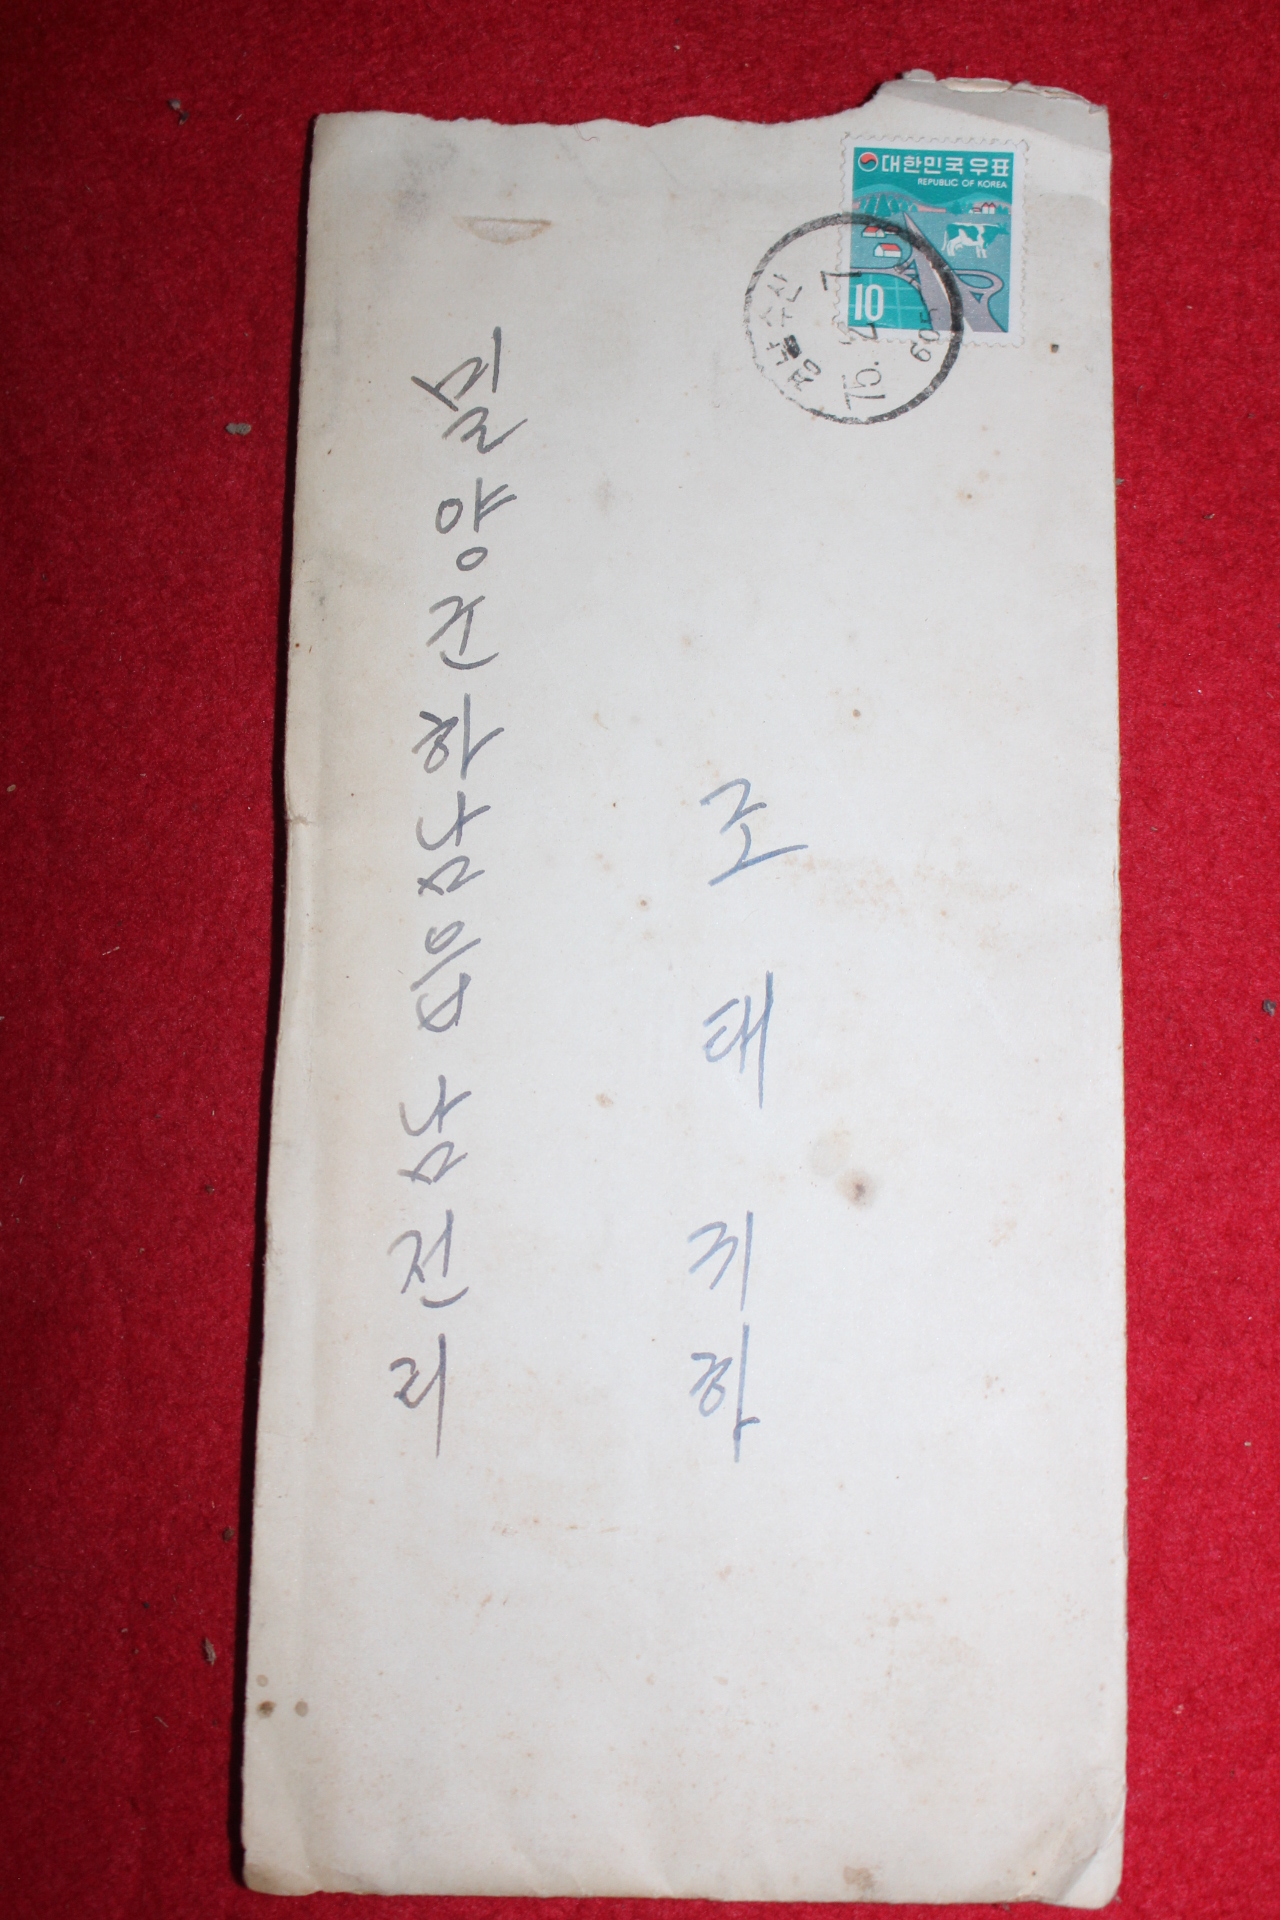 대한민국우표
REPUBLIC OF KOREA
10
경남수산
75. 2. 7
605
밀양군하남읍남전리
조태 귀하